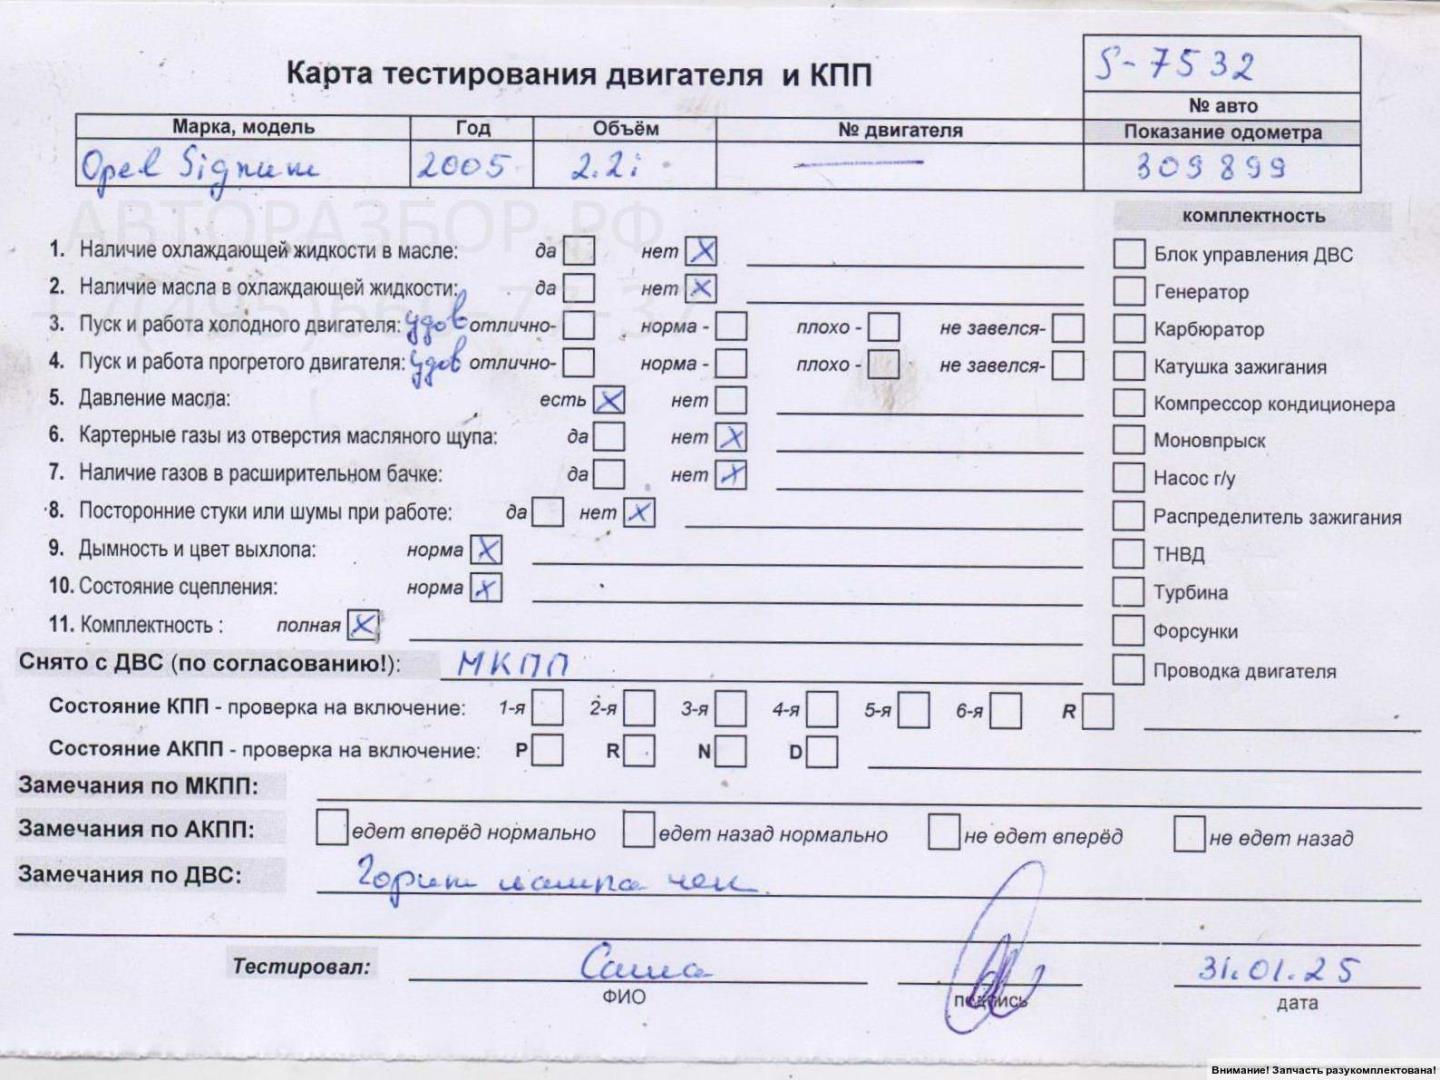 Карта тестирования двигателя и КПП
S-7532
№ авто
Марка, модель Год Объём № двигателя Показание одометра
Opel Signum 2005 2.2i — 309899
АВТОРАЗБОР.РФ
комплектность
1. Наличие охлаждающей жидкости в масле: да нет X
Блок управления ДВС
2. Наличие масла в охлаждающей жидкости: да нет X
Генератор
3. Пуск и работа холодного двигателя: удов отлично- норма - плохо - не завелся-
Карбюратор
4. Пуск и работа прогретого двигателя: удов отлично- норма - плохо - не завелся-
Катушка зажигания
5. Давление масла: есть X нет
Компрессор кондиционера
6. Картерные газы из отверстия масляного щупа: да нет X
Моновпрыск
7. Наличие газов в расширительном бачке: да нет X
Насос г/у
8. Посторонние стуки или шумы при работе: да нет X
Распределитель зажигания
9. Дымность и цвет выхлопа: норма X
ТНВД
10. Состояние сцепления: норма X
Турбина
11. Комплектность : полная X
Форсунки
Снято с ДВС (по согласованию!): МКПП
Проводка двигателя
Состояние КПП - проверка на включение: 1-я 2-я 3-я 4-я 5-я 6-я R
Состояние АКПП - проверка на включение: P R N D
Замечания по МКПП:
Замечания по АКПП: едет вперёд нормально едет назад нормально не едет вперёд не едет назад
Замечания по ДВС: Горит лампа чек.
Тестировал: Саша 31.01.25
ФИО подпись дата
Внимание! Запчасть разукомплектована!